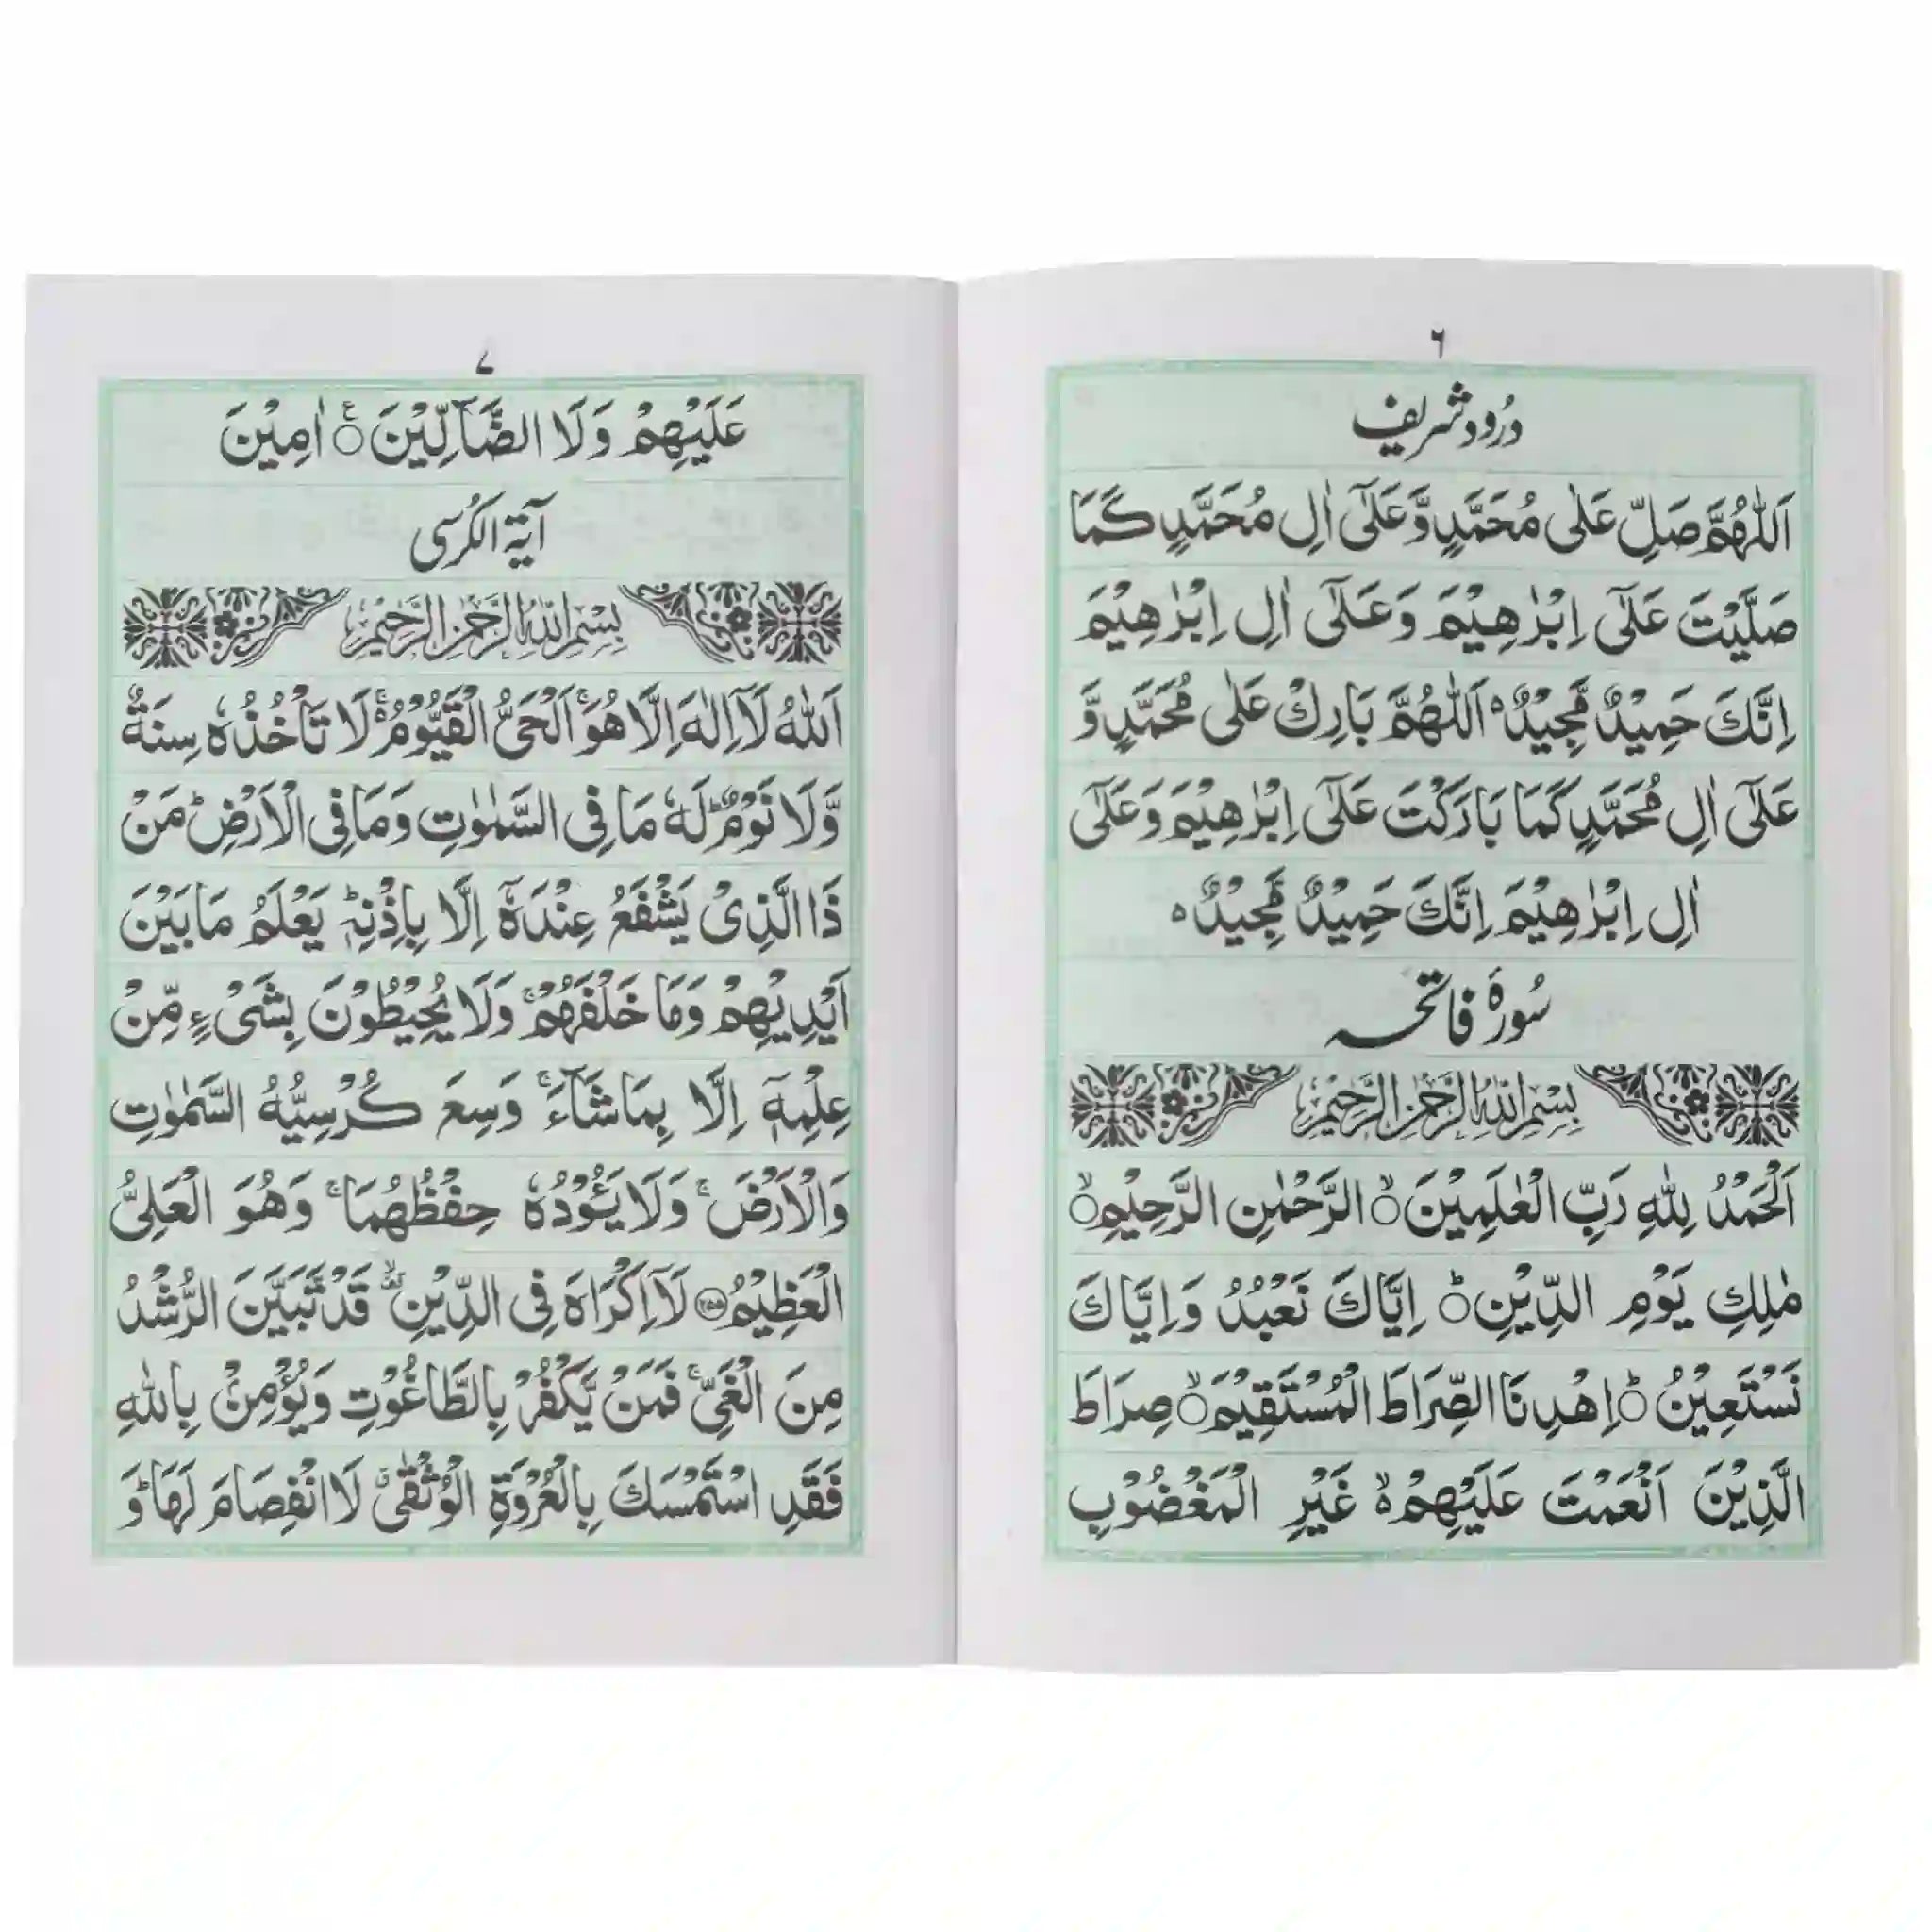 ٦
درود شریف
اَللّٰهُمَّ صَلِّ عَلٰى مُحَمَّدٍ وَّعَلٰٓى اٰلِ مُحَمَّدٍ كَمَا
صَلَّيْتَ عَلٰٓى اِبْرٰهِيْمَ وَعَلٰٓى اٰلِ اِبْرٰهِيْمَ
اِنَّكَ حَمِيْدٌ مَّجِيْدٌ ه اَللّٰهُمَّ بَارِكْ عَلٰى مُحَمَّدٍ وَّ
عَلٰٓى اٰلِ مُحَمَّدٍ كَمَا بَارَكْتَ عَلٰٓى اِبْرٰهِيْمَ وَعَلٰٓى
اٰلِ اِبْرٰهِيْمَ اِنَّكَ حَمِيْدٌ مَّجِيْدٌ ه
سُورۃ فاتحہ
بِسْمِ اللهِ الرَّحْمٰنِ الرَّحِيْمِ
اَلْحَمْدُ لِلّٰهِ رَبِّ الْعٰلَمِيْنَ ۙ الرَّحْمٰنِ الرَّحِيْمِ ۙ
مٰلِكِ يَوْمِ الدِّيْنِ ؕ اِيَّاكَ نَعْبُدُ وَاِيَّاكَ
نَسْتَعِيْنُ ؕ اِهْدِنَا الصِّرَاطَ الْمُسْتَقِيْمَ ۙ صِرَاطَ
الَّذِيْنَ اَنْعَمْتَ عَلَيْهِمْ ۙ غَيْرِ الْمَغْضُوْبِ
٧
عَلَيْهِمْ وَلَا الضَّآلِّيْنَ ۧ اٰمِيْنَ
آیۃ الکرسی
بِسْمِ اللهِ الرَّحْمٰنِ الرَّحِيْمِ
اَللّٰهُ لَآ اِلٰهَ اِلَّا هُوَ ۚ اَلْحَىُّ الْقَيُّوْمُ ۚ لَا تَاْخُذُهٗ سِنَةٌ
وَّلَا نَوْمٌ ؕ لَهٗ مَا فِى السَّمٰوٰتِ وَمَا فِى الْاَرْضِ ؕ مَنْ
ذَا الَّذِىْ يَشْفَعُ عِنْدَهٗٓ اِلَّا بِاِذْنِهٖ ؕ يَعْلَمُ مَا بَيْنَ
اَيْدِيْهِمْ وَمَا خَلْفَهُمْ ۚ وَلَا يُحِيْطُوْنَ بِشَىْءٍ مِّنْ
عِلْمِهٖٓ اِلَّا بِمَا شَآءَ ۚ وَسِعَ كُرْسِيُّهُ السَّمٰوٰتِ
وَالْاَرْضَ ۚ وَلَا يَـُٔوْدُهٗ حِفْظُهُمَا ۚ وَهُوَ الْعَلِىُّ
الْعَظِيْمُ ۝٢٥٥ لَآ اِكْرَاهَ فِى الدِّيْنِ ۙ قَدْ تَّبَيَّنَ الرُّشْدُ
مِنَ الْغَىِّ ۚ فَمَنْ يَّكْفُرْ بِالطَّاغُوْتِ وَيُؤْمِنْ بِاللّٰهِ
فَقَدِ اسْتَمْسَكَ بِالْعُرْوَةِ الْوُثْقٰى ۗ لَا انْفِصَامَ لَهَا ؕ وَ